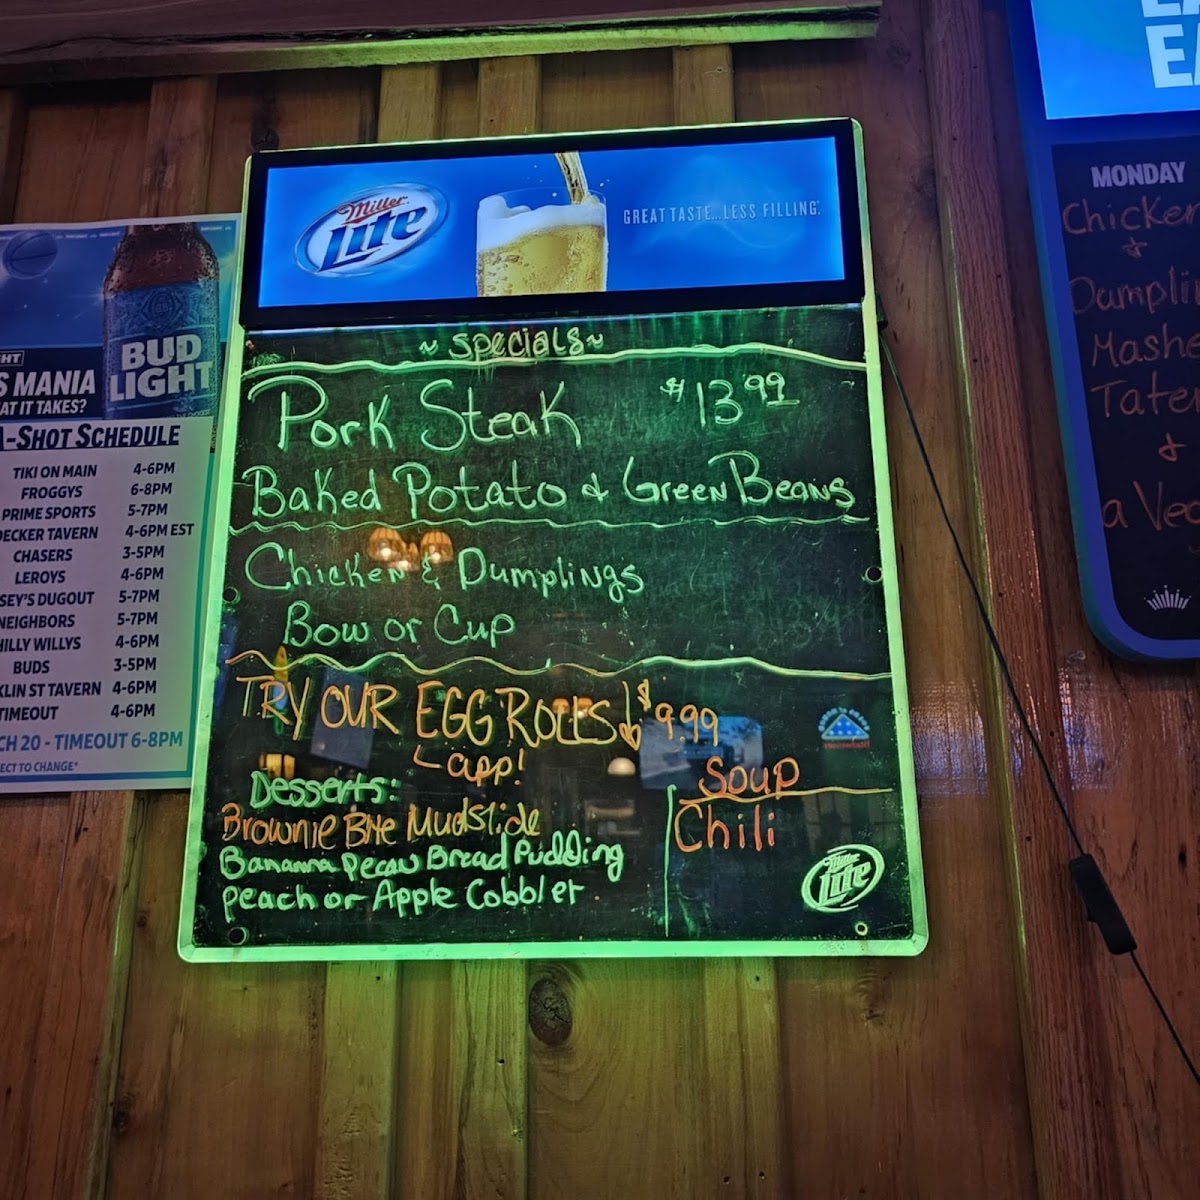 Miller
Lite
GREAT TASTE...LESS FILLING.
~ Specials ~
Pork Steak $13.99
Baked Potato & Green Beans
Chicken & Dumplings
Bow or Cup
TRY OUR EGG ROLLS $9.99
app!
Desserts:
Brownie Bite Mudslide
Bananna Pecan Bread Pudding
peach or Apple Cobbler
Soup
Chili
Miller
Lite
BUD
LIGHT
MANIA
AT IT TAKES?
-SHOT SCHEDULE
TIKI ON MAIN 4-6PM
FROGGYS 6-8PM
PRIME SPORTS 5-7PM
DECKER TAVERN 4-6PM EST
CHASERS 3-5PM
LEROYS 4-6PM
SEY'S DUGOUT 5-7PM
NEIGHBORS 5-7PM
HILLY WILLYS 4-6PM
BUDS 3-5PM
KLIN ST TAVERN 4-6PM
TIMEOUT 4-6PM
CH 20 - TIMEOUT 6-8PM
ECT TO CHANGE*
MONDAY
Chicken
&
Dumplin
Mashe
Tater
&
a Veg